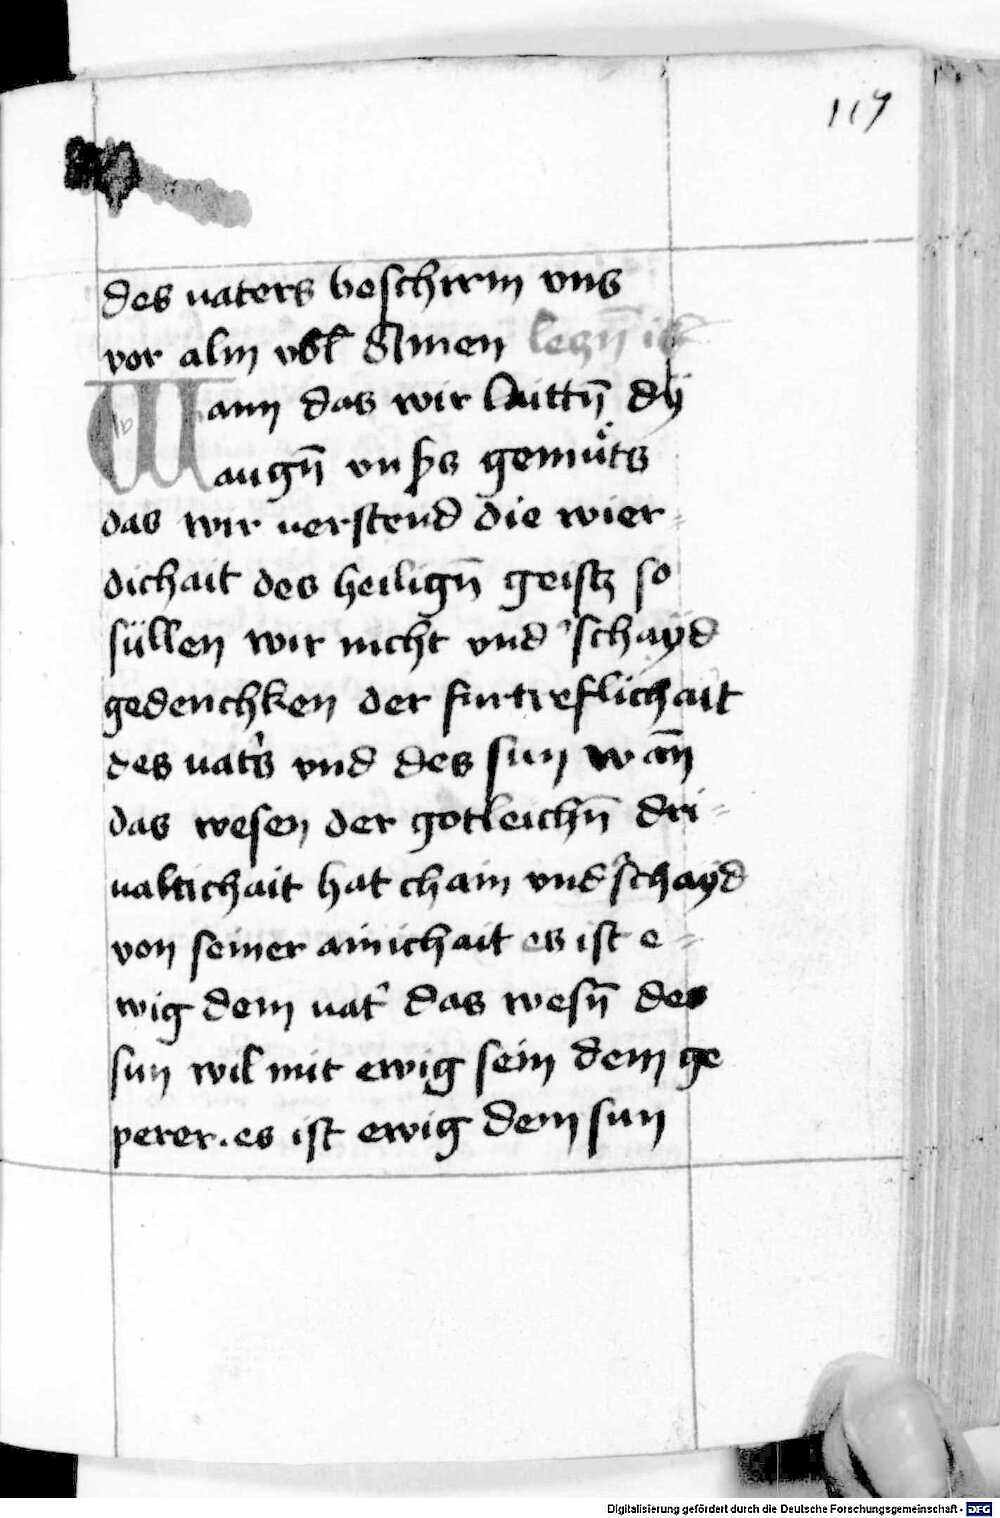 117
des uaters beschirm vns
vor alm vbl̄ Amen legn̄
Wann das wir Auittn̄ dÿ
augn̄ vnsers gemuͤts
das wir uerstend die wier=
dichait des heilign̄ geistz so
süllen wir nicht vnd'schayd
gedenchken der furtreflichait
des uat's vnd des sun wān
das wesen der gotleichn̄ dri=
ualtichait hat chain vnd'schayd
von seiner ainichait es ist e=
wig dem uat' das wesn̄ des
sun wil mit ewig sein dem ge
perer. es ist ewig dem sun
Digitalisierung gefördert durch die Deutsche Forschungsgemeinschaft - DFG